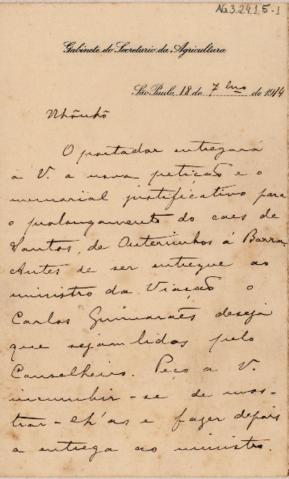 Nº 3.24.1.5-1
Gabinete do Secretario da Agricultura
São Paulo, 18 de 7bro de 1914
Nhônhô
O portador entregará
a V. a nova petição e o
memorial justificativo para
o prolongamento do caes de
Santos, de Outeirinhos á Barra.
Antes de ser entregue ao
ministro da Viação o
Carlos Guimarães deseja
que sejam lidos pelo
Conselheiro. Peço a V.
incumbir-se de mos-
trar-lh'as e fazer depois
a entrega ao ministro.